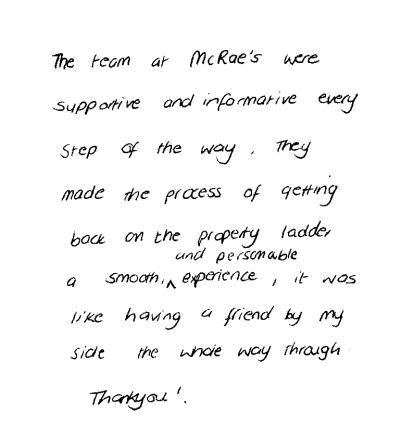 The team at McRae's were
supportive and informative every
step of the way. They
made the process of getting
back on the property ladder
and personable
a smooth, ^ experience, it was
like having a friend by my
side the whole way through
Thankyou!.